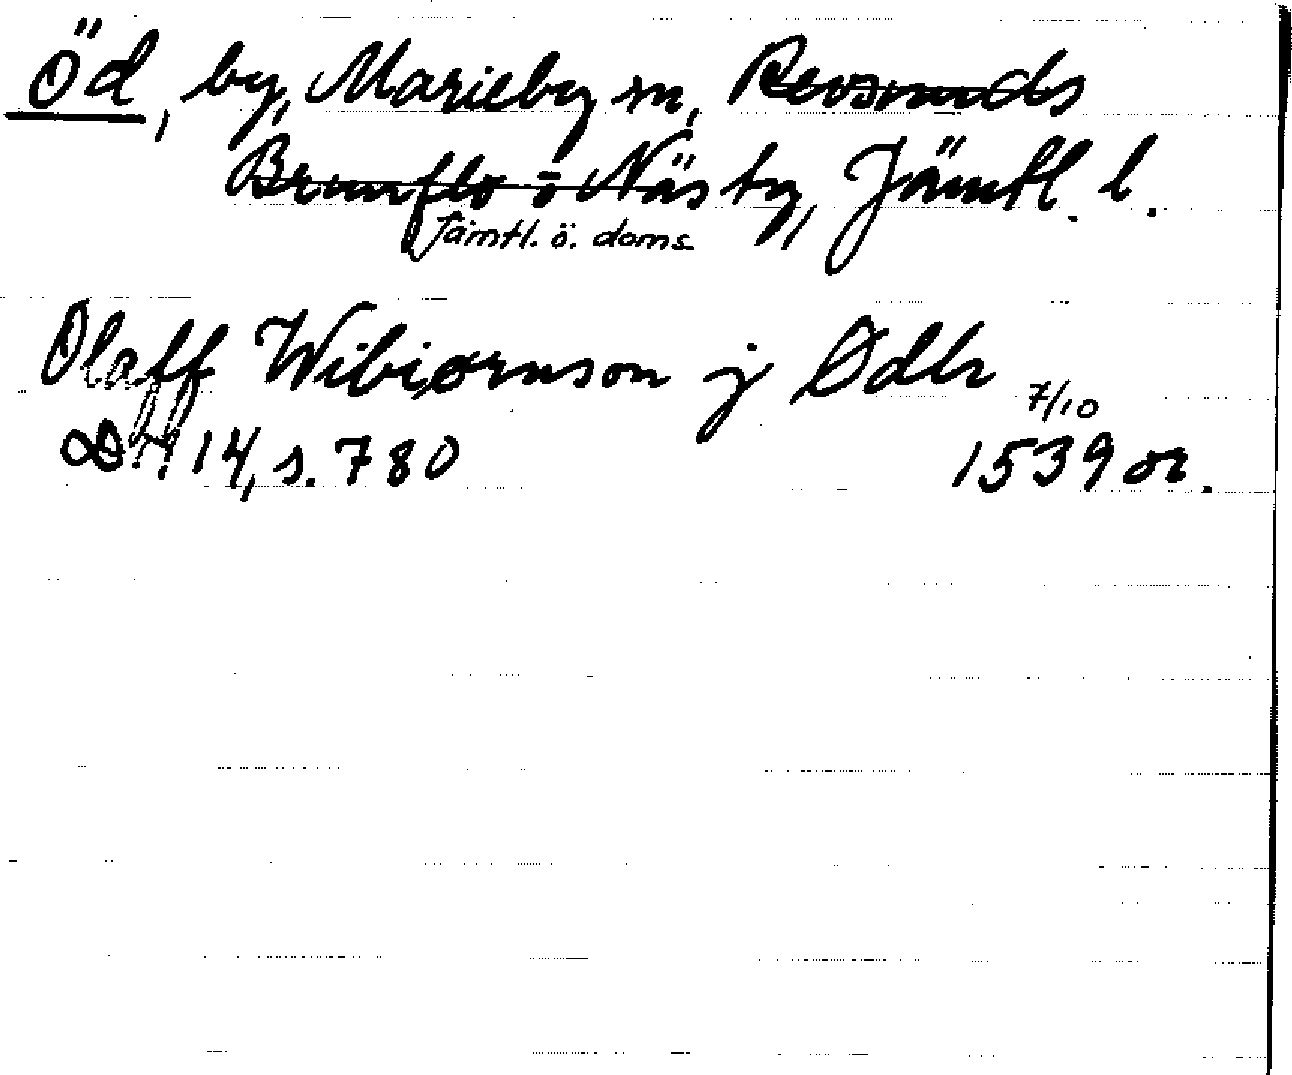 Öd, by, Marieby sn, Revsunds
Brunflo o Näs tg, Jämtl. l.
Jämtl. ö. doms
Olaff Wibiørnson j Ødhr 7/10
DN 14, s. 780 1539 or.